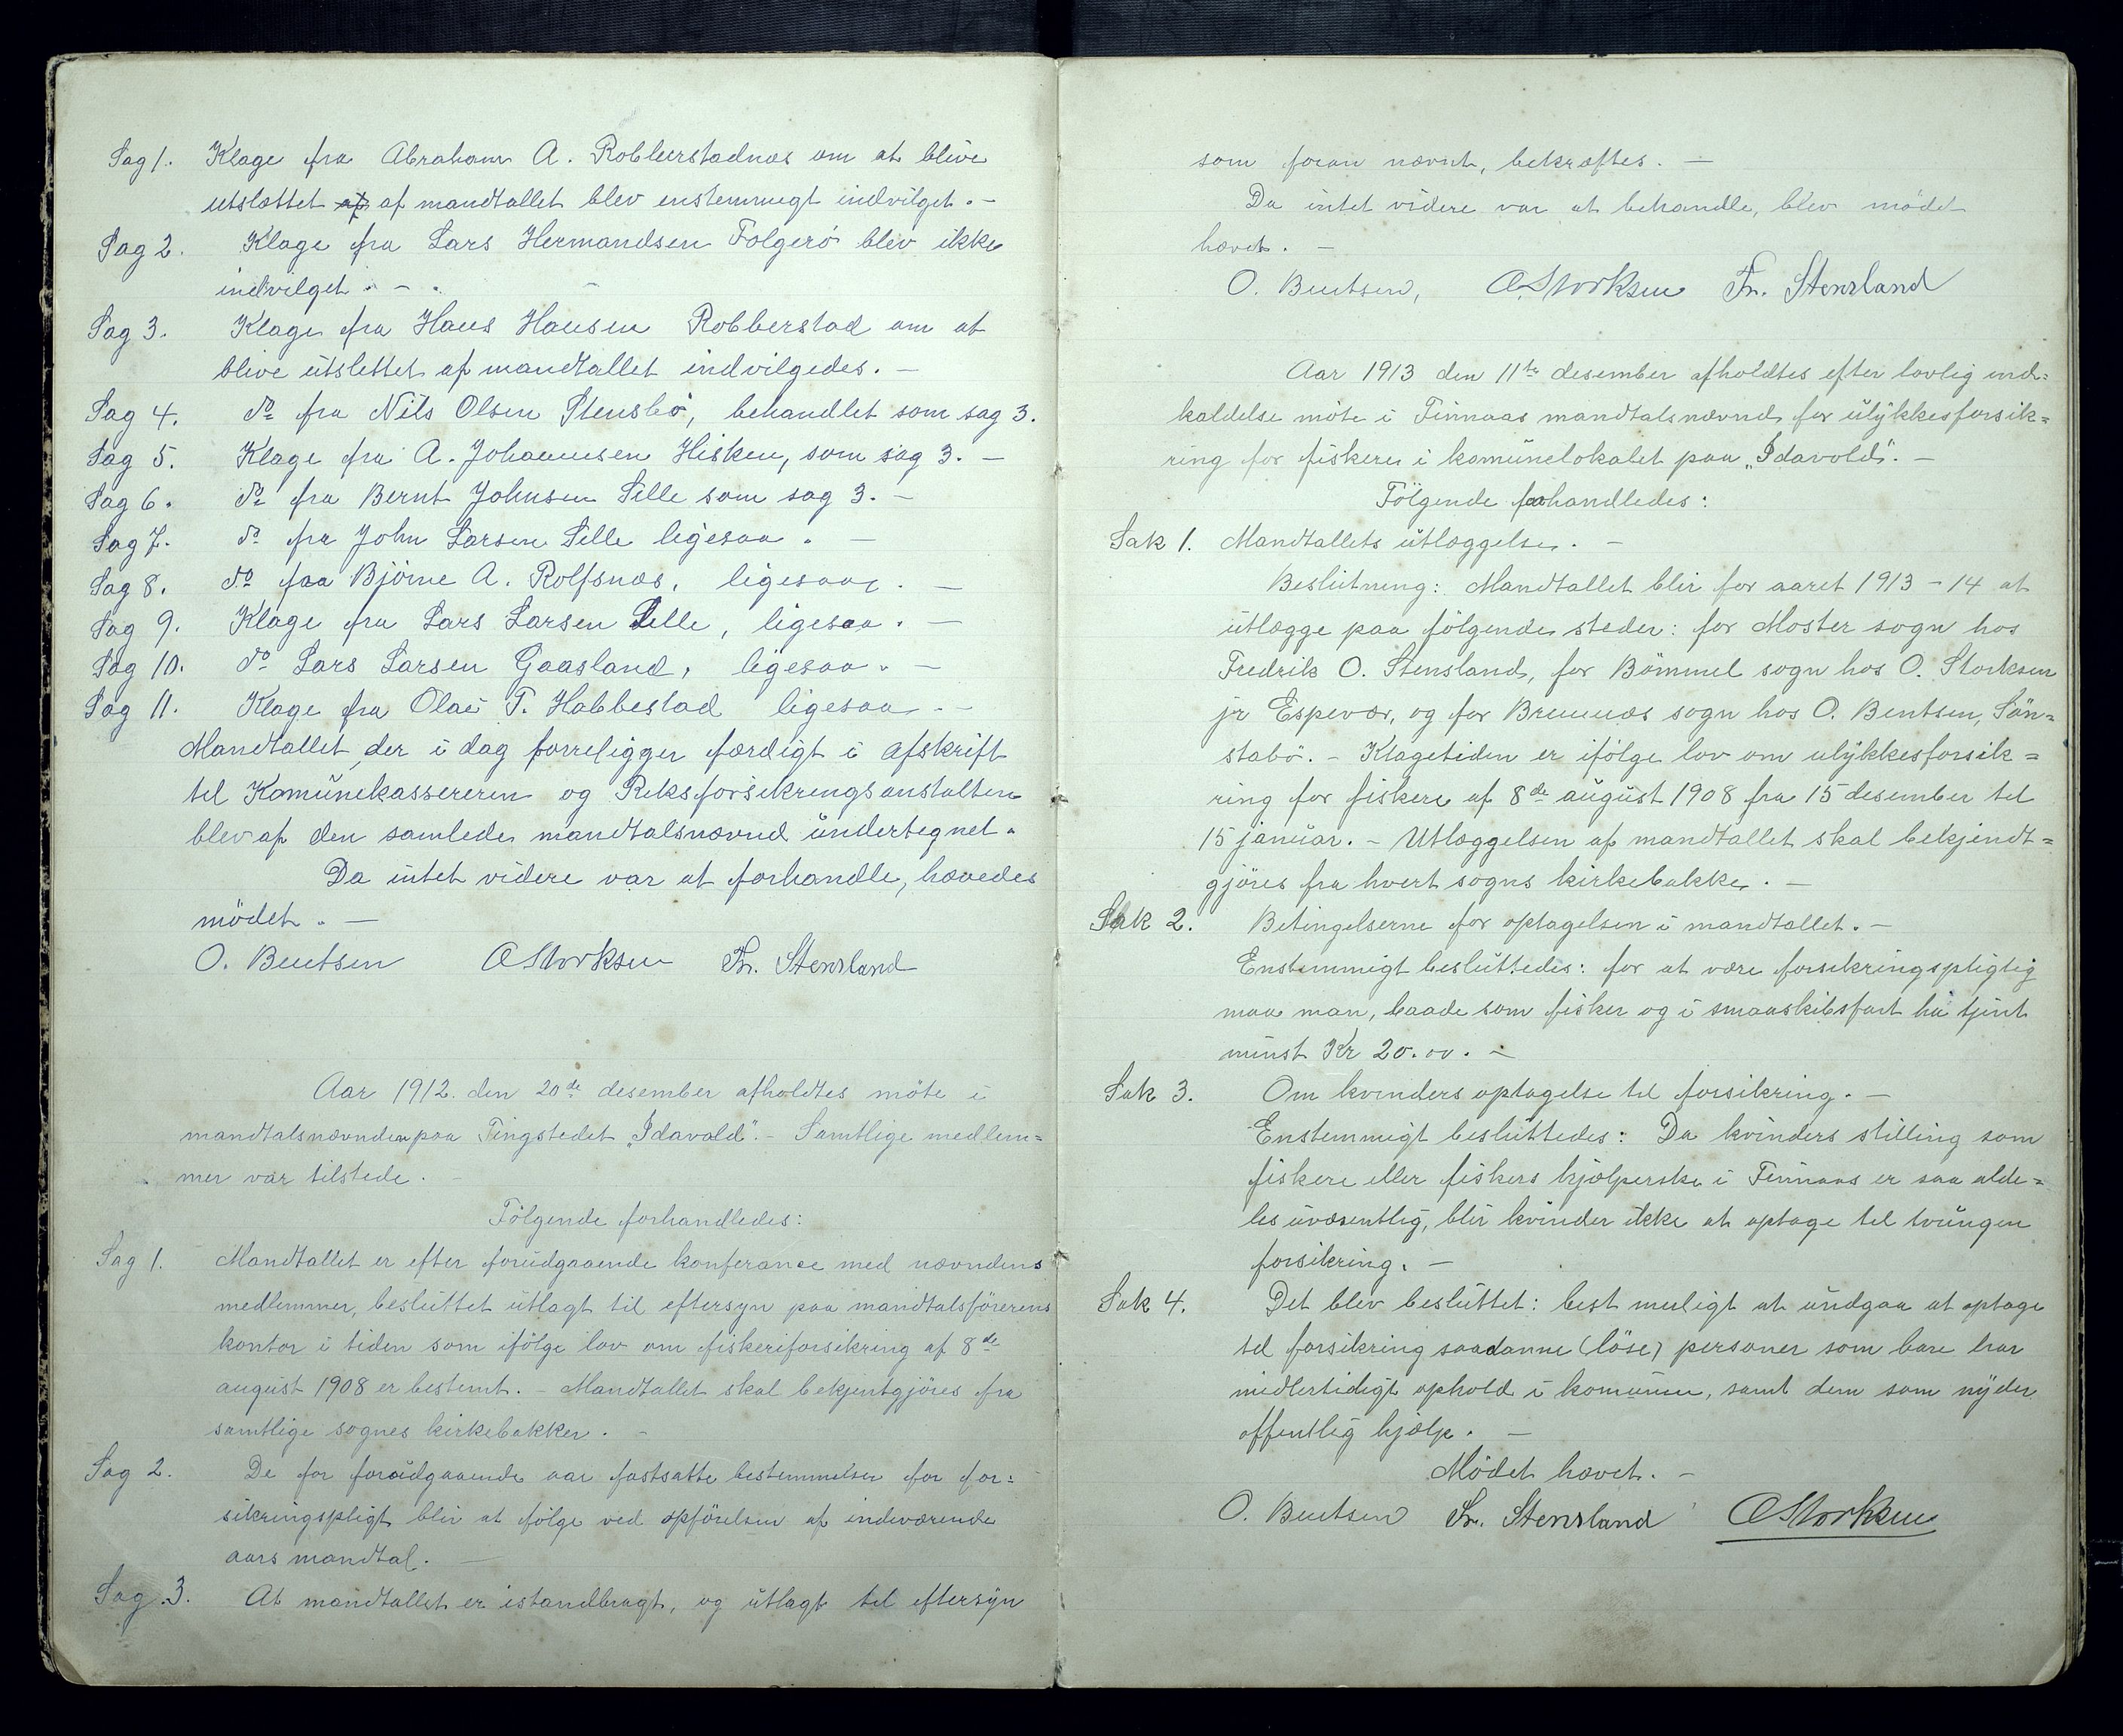 Sag 1. Klage fra Abraham A. Robberstadnæs om at blive
utslættet af af mandtallet blev enstemmegt indvilget. -
Sag 2. Klage fra Lars Hermandsen Folgerö blev ikke
indvilget. - .
Sag 3. Klage fra Hans Hansen Robberstad om at
blive utslettet af mandtallet indvilgedes. -
Sag 4. do fra Nils Olsen Stensbö, behandlet som sag 3.
Sag 5. Klage fra A. Johannesen Hisken, som sag 3. -
Sag 6. do fra Bernt Johnsen Sille som sag 3. -
Sag 7. do fra John Larsen Sille ligesaa. -
Sag 8. do fra Björne A. Rolfsnæs, ligesaa. -
Sag 9. Klage fra Lars Larsen Lille, ligesaa. -
Sag 10. do Lars Larsen Gaasland, ligesaa. -
Sag 11. Klage fra Olai T. Habbestad ligesaa. -
Mandtallet, der i dag forreligger færdigt i afskrift
til Komunekassereren og Riksforsikringsanstalten
blev af den samlede mandtalsnævnd undertegnet.
Da intet videre var at forhandle, hævedes
mödet. -
O. Bentsen O Storksen Fr. Stensland
Aar 1912. den 20de desember afholdtes möte i
mandtalsnævnden paa Tingstedet "Idavold". - Samtlige medlem=
mer var tilstede. -
Fölgende forhandledes:
Sag 1. Mandtallet er efter forudgaaende konferance med nævndens
medlemmer, besluttet utlagt til eftersyn paa mandtalsförerens
kontor i tiden som ifölge lov om fiskeriforsikring af 8de
august 1908 er bestemt. - Mandtallet skal bekjentgjöres fra
samtlige sognes kirkebakker. -
Sag 2. De for forudgaaende aar fastsatte bestemmelser for for=
sikringspligt blir at fölge ved opförelsen af indeværende
aars mandtal. -
Sag 3. At mandtallet er istandbragt, og utlagt til eftersyn
som foran nævnt, bekræftes. -
Da intet videre var at behandle, blev mödet
hævet. -
O. Bentsen, O. Storksen Fr. Stensland
Aar 1913 den 11te desember afholdtes efter lovlig ind=
kaldelse möte i Finnaas mandtalsnævnd for ulykkesforsik=
ring for fiskere i komunelokalet paa "Idavold". -
Fölgende forhandledes:
Sak 1. Mandtallets utlæggelse. -
Beslutning: Mandtallet blir for aaret 1913-14 at
utlægge paa fölgende steder: for Moster sogn hos
Fredrik O. Stensland, for Bömmel sogn hos O. Storksen
jr Espevær, og for Bremnæs sogn hos O. Bentsen, Sön=
stabö. - Klagetiden er ifölge lov om ulykkesforsik=
ring for fiskere af 8de august 1908 fra 15 desember til
15 januar. - Utlæggelsen af mandtallet skal bekjendt=
gjöres fra hvert sogns kirkebakke. -
Sak 2. Betingelserne for optagelsen i mandtallet. -
Enstemmigt besluttedes: for at være forsikringspligtig
maa man, baade som fisker og i smaaskibsfart ha tjent
minst Kr 20.00. -
Sak 3. Om kvinders optagelse til forsikring. -
Enstemmigt besluttedes: Da kvinders stilling som
fiskere eller fiskers hjælperske i Finnaas er saa alde=
les uvæsentlig, blir kvinder ikke at optage til tvungen
forsikring. -
Sak 4. Det blev besluttet: best muligt at undgaa at optage
til forsikring saadanne (löse) personer som bare har
midlertidigt ophold i komunen, samt dem som nyder
offentlig hjælp. -
Mödet hævet. -
O. Bentsen Fr. Stensland O Storksen